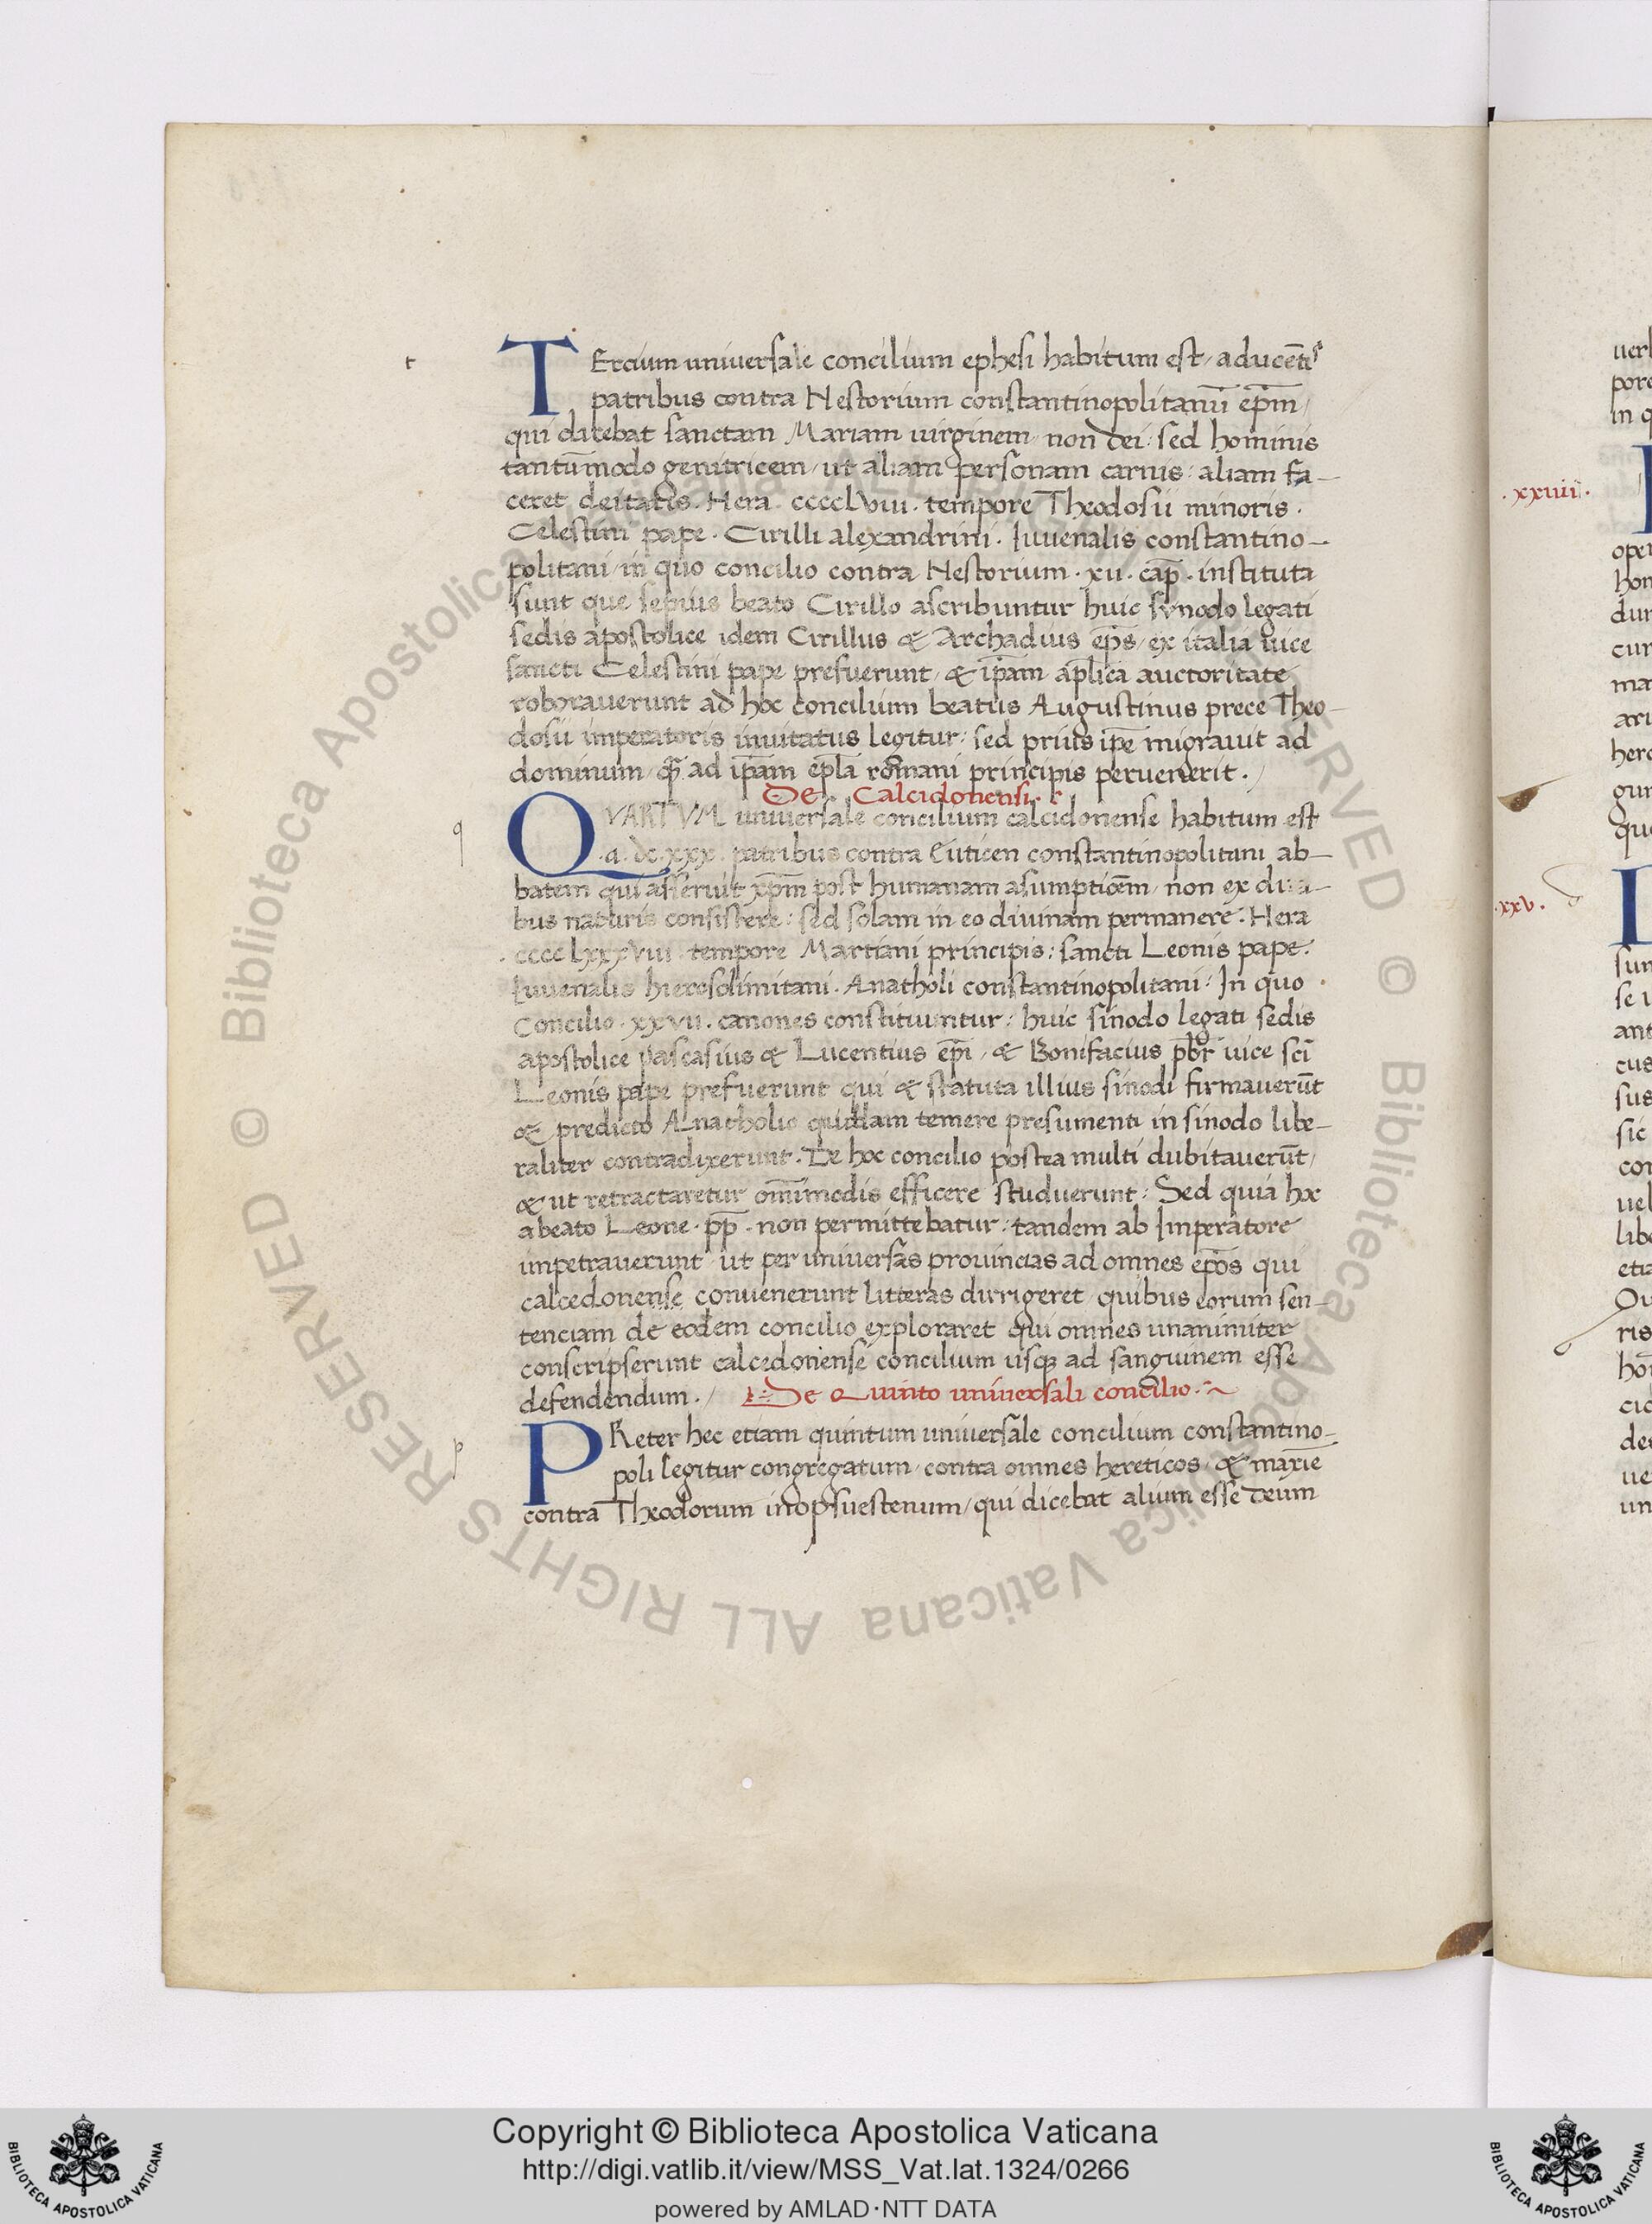 t
TErcium universale concilium ephesi habitum est, a ducētis
patribus contra Nestorium constantinopolitanū ep̄m,
qui dicebat sanctam Mariam uirginem, non dei: sed hominis
tantūmodo genitricem, ut aliam personam carnis: aliam fa-
ceret deitatis. Hera. ccccLviii. tempore Theodosii minoris.
Celestini pape. Cirilli alexandrini. Iuuenalis constantino-
politani, in quo concilio contra Nestorium. xii. cap̄. instituta
sunt que sepius beato Cirillo ascribuntur huic synodo legati
sedis apostolice idem Cirillus & Archadius ep̄s, ex italia uice
sancti Celestini pape prefuerunt, & ip̄am ap̄lica auctoritate
roborauerunt ad hoc concilium beatus Augustinus prece Theo-
dosii imperatoris inuitatus legitur: sed prius ip̄e migrauit ad
dominum, ad ip̄am ep̄la romani principis peruenerit.
De Calcidonensi. c
q
QVARTVM universale concilium calcidonense habitum est
.a. dc.xxx. patribus contra Euticen constantinopolitani ab-
batem qui asseruit xp̄m post humanam asumptiōem, non ex dua-
bus naturis consistere: sed solam in eo diuinam permanere: Hera
.cccclxxxviii. tempore Martiani principis: sancti Leonis pape:
Iuuenalis hierosolimitani. Anatholi constantinopolitani: In quo
Concilio. xxvii. canones constituuntur: huic sinodo legati sedis
apostolice pascasius & Lucentius ep̄i, & Bonifacius p̄br uice sc̄i
Leonis pape prefuerunt qui & statuta illius sinodi firmauerūt
& predicto Anatholio quiddam temere presumenti in sinodo libe-
raliter contradixerunt. De hoc concilio postea multi dubitauerūt,
& ut retractaretur om̄imodis efficere studuerunt: Sed quia hoc
a beato Leone. pp̄. non permittebatur: tandem ab Imperatore
impetrauerunt ut per universas prouincias ad omnes ep̄os qui
calcedonense convenerunt litteras dirrigeret, quibus eorum sen-
tenciam de eodem concilio exploraret qui omnes unanimiter
conscripserunt calcedonense concilium usq; ad sanguinem esse
defendendum. De Quinto uniuersali concilio.
p
PReter hec etiam quintum universale concilium constantino-
poli legitur congregatum, contra omnes hereticos, & maxīe
contra Theodorum inopsuestenum, qui dicebat alium esse deum
.xxiiii.
.xxv.
© Biblioteca Apostolica Vaticana ALL RIGHTS RESERVED
Copyright © Biblioteca Apostolica Vaticana
http://digi.vatlib.it/view/MSS_Vat.lat.1324/0266
powered by AMLAD·NTT DATA
BIBLIOTECA APOSTOLICA VATICANA
BIBLIOTECA APOSTOLICA VATICANA